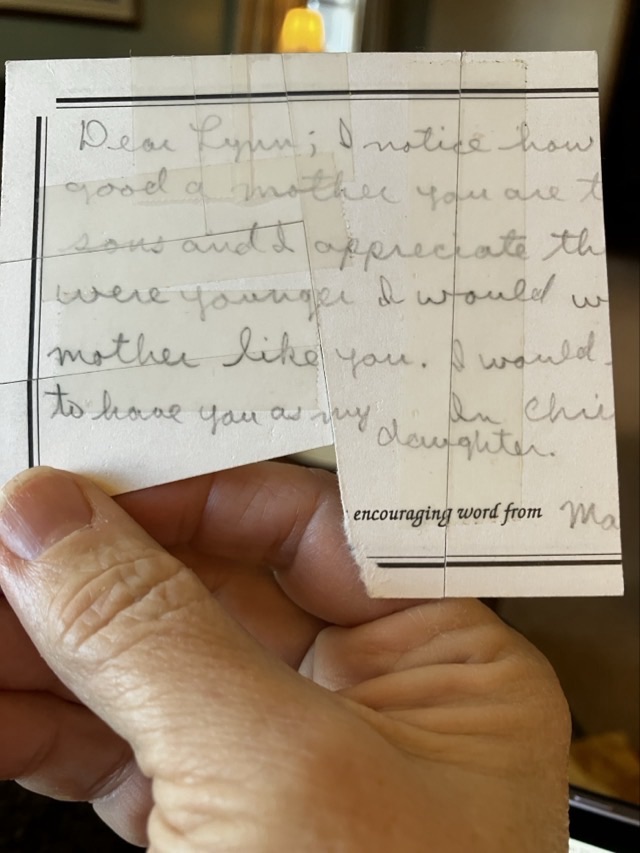 Dear Lynn; I notice how
good a mother you are t
sons and I appreciate th
were younger I would w
mother like you. I would
to have you as my
daughter.
In Chri
encouraging word from Ma